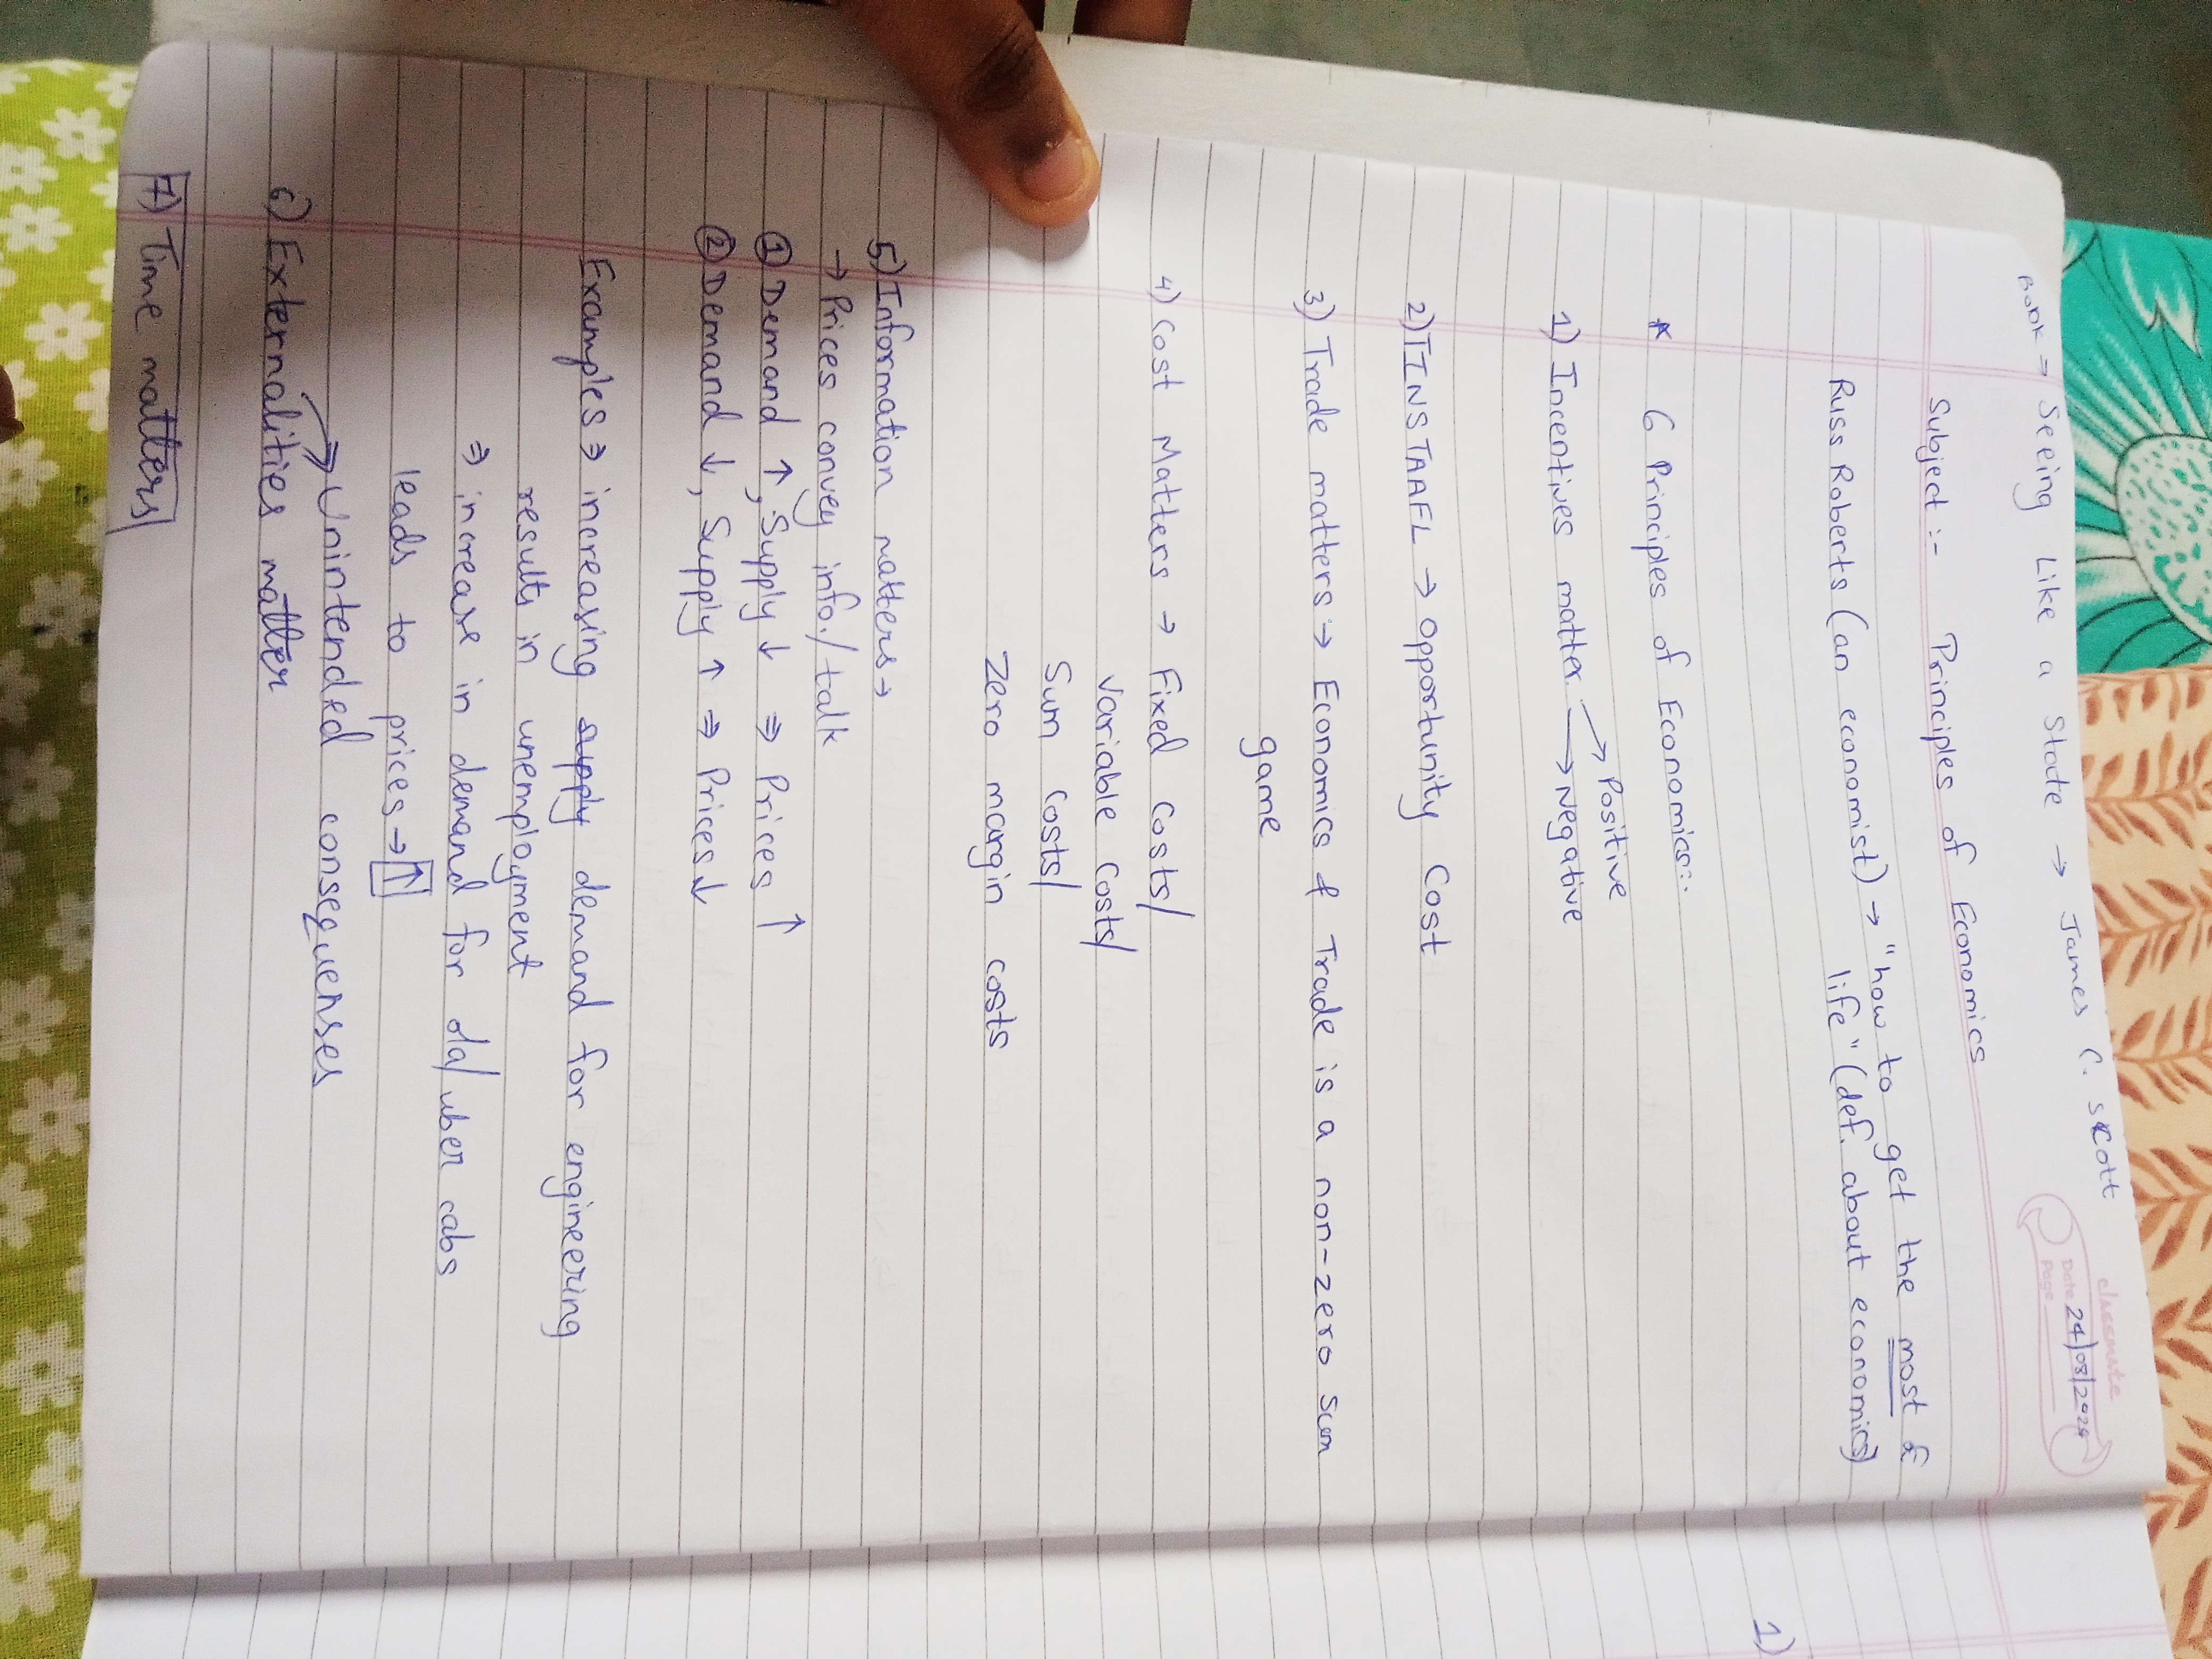 Book → Seeing Like a State → James C. Scott
classmate
Date 24/08/2024
Page
Subject :- Principles of Economics
Russ Roberts (an economist) → "how to get the most &
life" (def. about economics)
* 6 Principles of Economics:-
1) Incentives matter → Positive
→ Negative
2) TINSTAAFL → Opportunity Cost
3) Trade matters → Economics & Trade is a non-zero sum
game
4) Cost Matters → Fixed Costs/
Variable Costs/
Sum Costs/
Zero margin costs
5) Information matters →
→ Prices convey info./talk
① Demand ↑, Supply ↓ ⇒ Prices ↑
② Demand ↓, Supply ↑ ⇒ Prices ↓
Examples ⇒ increasing supply demand for engineering
results in unemployment
⇒ increase in demand for ola/uber cabs
leads to prices → ↑
Unintended consequenses
6) Externalities matter
7) Time matters
1)